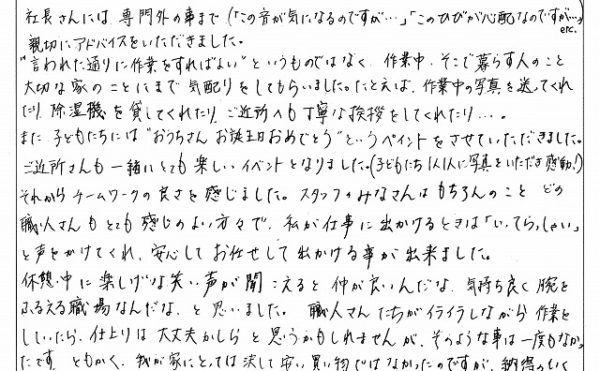 社長さんには 専門外の事まで(「この音が気になるのですが…」「このひびが心配なのですが…」etc.
親切にアドバイスをいただきました。
"言われた通りに作業をすればよい"というものではなく、作業中、そこで暮らす人のこと
大切な家のことにまで 気配りをしてもらいました。たとえば、作業中の写真を送ってくれ
たり 除湿機を貸してくれたり、ご近所へも丁寧な挨拶をしてくれたり…。
また 子どもたちには"おうちさん お誕生日おめでとう"というペイントをさせていただきました。
ご近所さんも一緒にとても楽しいイベントとなりました。(子どもたち1人1人に写真をいただき感動!)
それから チームワークの良さを感じました。スタッフのみなさんはもちろんのこと どの
職人さんもとても感じのよい方々で、私が仕事に出かけるときは「いってらっしゃい」
と声をかけてくれ、安心してお任せして出かける事が出来ました。
休憩中に楽しげな笑い声が聞こえると 仲が良いんだな、気持ち良く腕を
ふるえる職場なんだな、と思いました。 職人さんたちがイライラしながら作業を
していたら、仕上りは大丈夫かしら と思うかもしれませんが、そのような事は一度もなかっ
たです。ともかく、我が家にとっては決して安い買い物ではなかったのですが、納得のいく